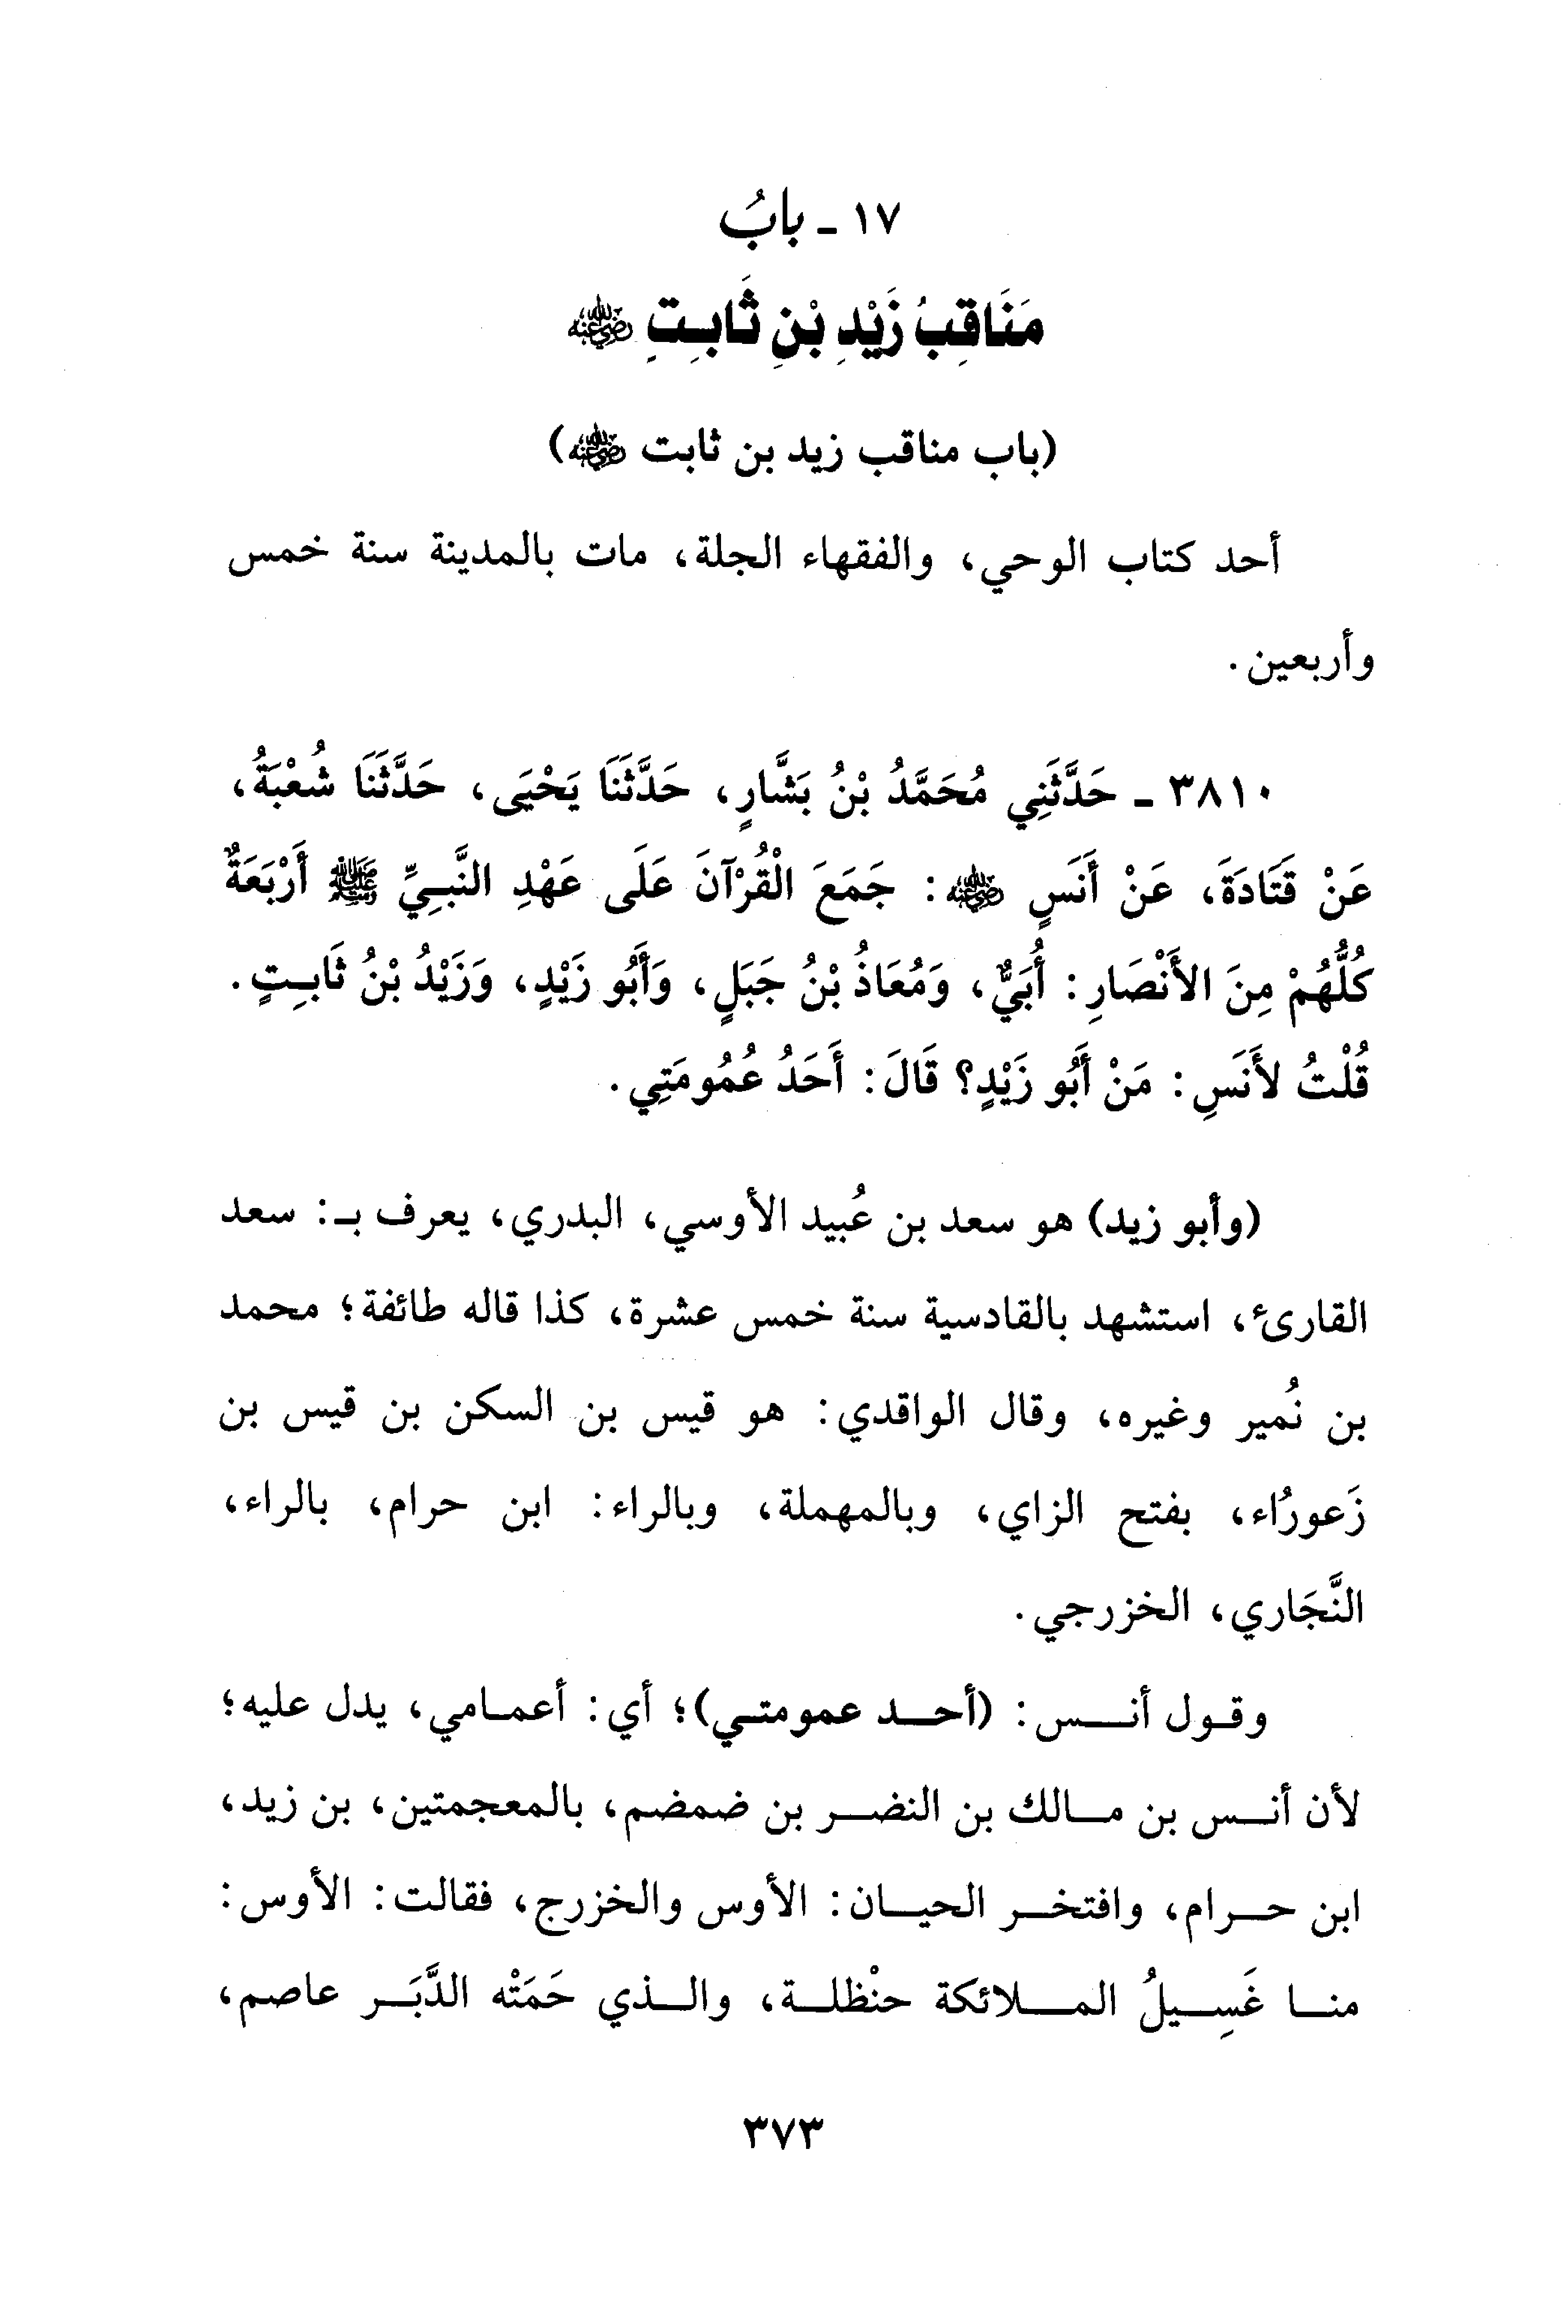 ١٧ - بابُ
مَنَاقِبُ زَيْدِ بْنِ ثَابِتٍ رضي الله عنه
(باب مناقب زيد بن ثابت رضي الله عنه)
أحد كتاب الوحي، والفقهاء الجلة، مات بالمدينة سنة خمس
وأربعين.
٣٨١٠ - حَدَّثَنِي مُحَمَّدُ بْنُ بَشَّارٍ، حَدَّثَنَا يَحْيَى، حَدَّثَنَا شُعْبَةُ،
عَنْ قَتَادَةَ، عَنْ أَنَسٍ رضي الله عنه: جَمَعَ الْقُرْآنَ عَلَى عَهْدِ النَّبِيِّ ﷺ أَرْبَعَةٌ
كُلُّهُمْ مِنَ الأَنْصَارِ: أُبَيٌّ، وَمُعَاذُ بْنُ جَبَلٍ، وَأَبُو زَيْدٍ، وَزَيْدُ بْنُ ثَابِتٍ.
قُلْتُ لأَنَسِ: مَنْ أَبُو زَيْدٍ؟ قَالَ: أَحَدُ عُمُومَتِي.
(وأبو زيد) هو سعد بن عُبيد الأوسي، البدري، يعرف بـ: سعد
القارئ، استشهد بالقادسية سنة خمس عشرة، كذا قاله طائفة؛ محمد
بن نُمير وغيره، وقال الواقدي: هو قيس بن السكن بن قيس بن
زَعورُاء، بفتح الزاي، وبالمهملة، وبالراء: ابن حرام، بالراء،
النَّجَاري، الخزرجي.
وقول أنس: (أحد عمومتي)؛ أي: أعمامي، يدل عليه؛
لأن أنس بن مالك بن النضر بن ضمضم، بالمعجمتين، بن زيد،
ابن حرام، وافتخر الحيان: الأوس والخزرج، فقالت: الأوس:
منا غَسِيلُ الملائكة حنْظلة، والذي حَمَتْه الدَّبَر عاصم،
٣٧٣